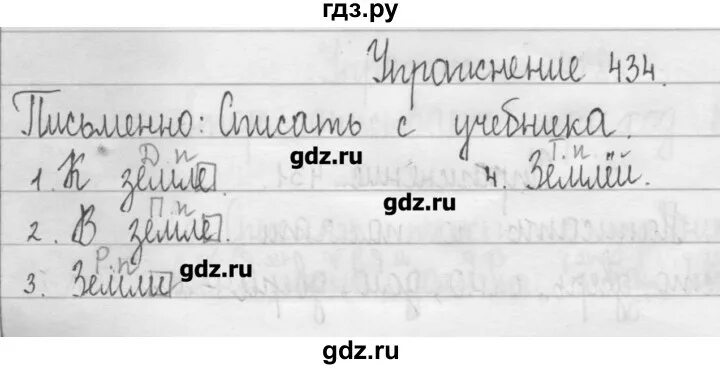 гдз.ру
Упражнение 434.
Письменно: Списать с учебника.
gdz.ru
Д.п Т.п
1. К земле. 4. Землёй.
gdz.ru
П.п
2. В земле.
Р.п
3. Земли
gdz.ru
gdz.ru